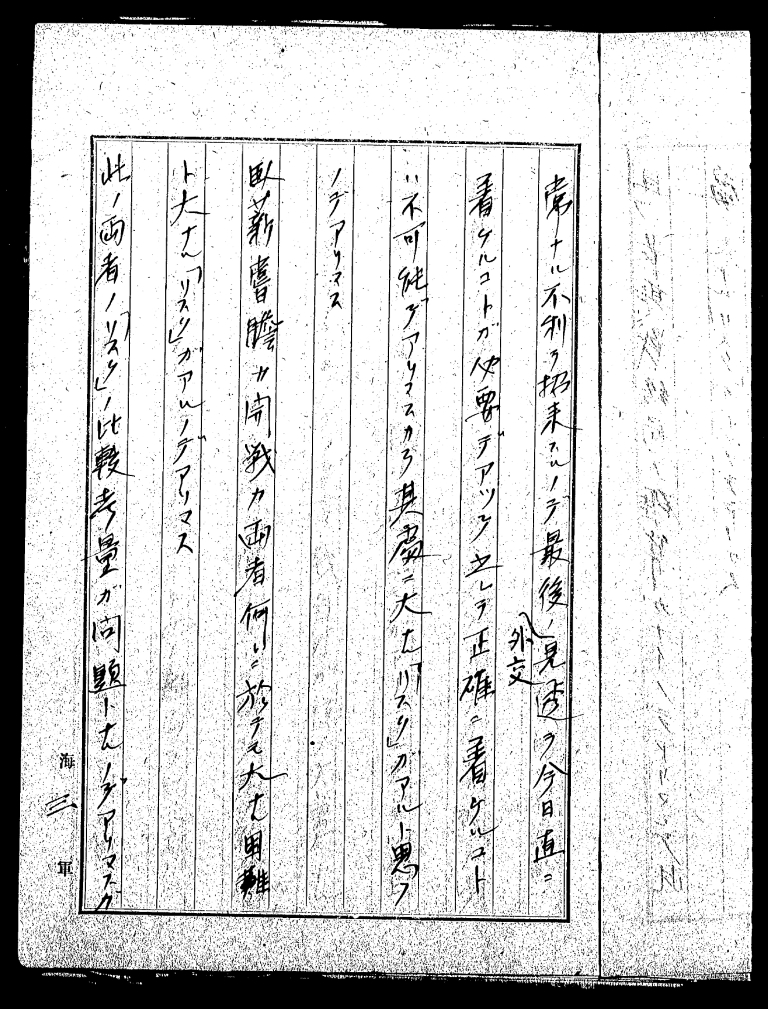 常ナル不利ヲ招来スルノデ最後ノ外交見透ヲ今日直ニ
着ケルコトガ必要デアツテ之レヲ正確ニ着ケルコト
ハ不可能デアリマスカラ其處ニ大ナル「リスク」ガアルト思フ
ノデアリマス
臥薪嘗膽カ開戦カ両者何レニ於テモ大ナル困難
ト大ナル「リスク」ガアルノデアリマス
此ノ両者ノ「リスク」ノ比較考量ガ問題トナルノデアリマスガ
海
三
軍